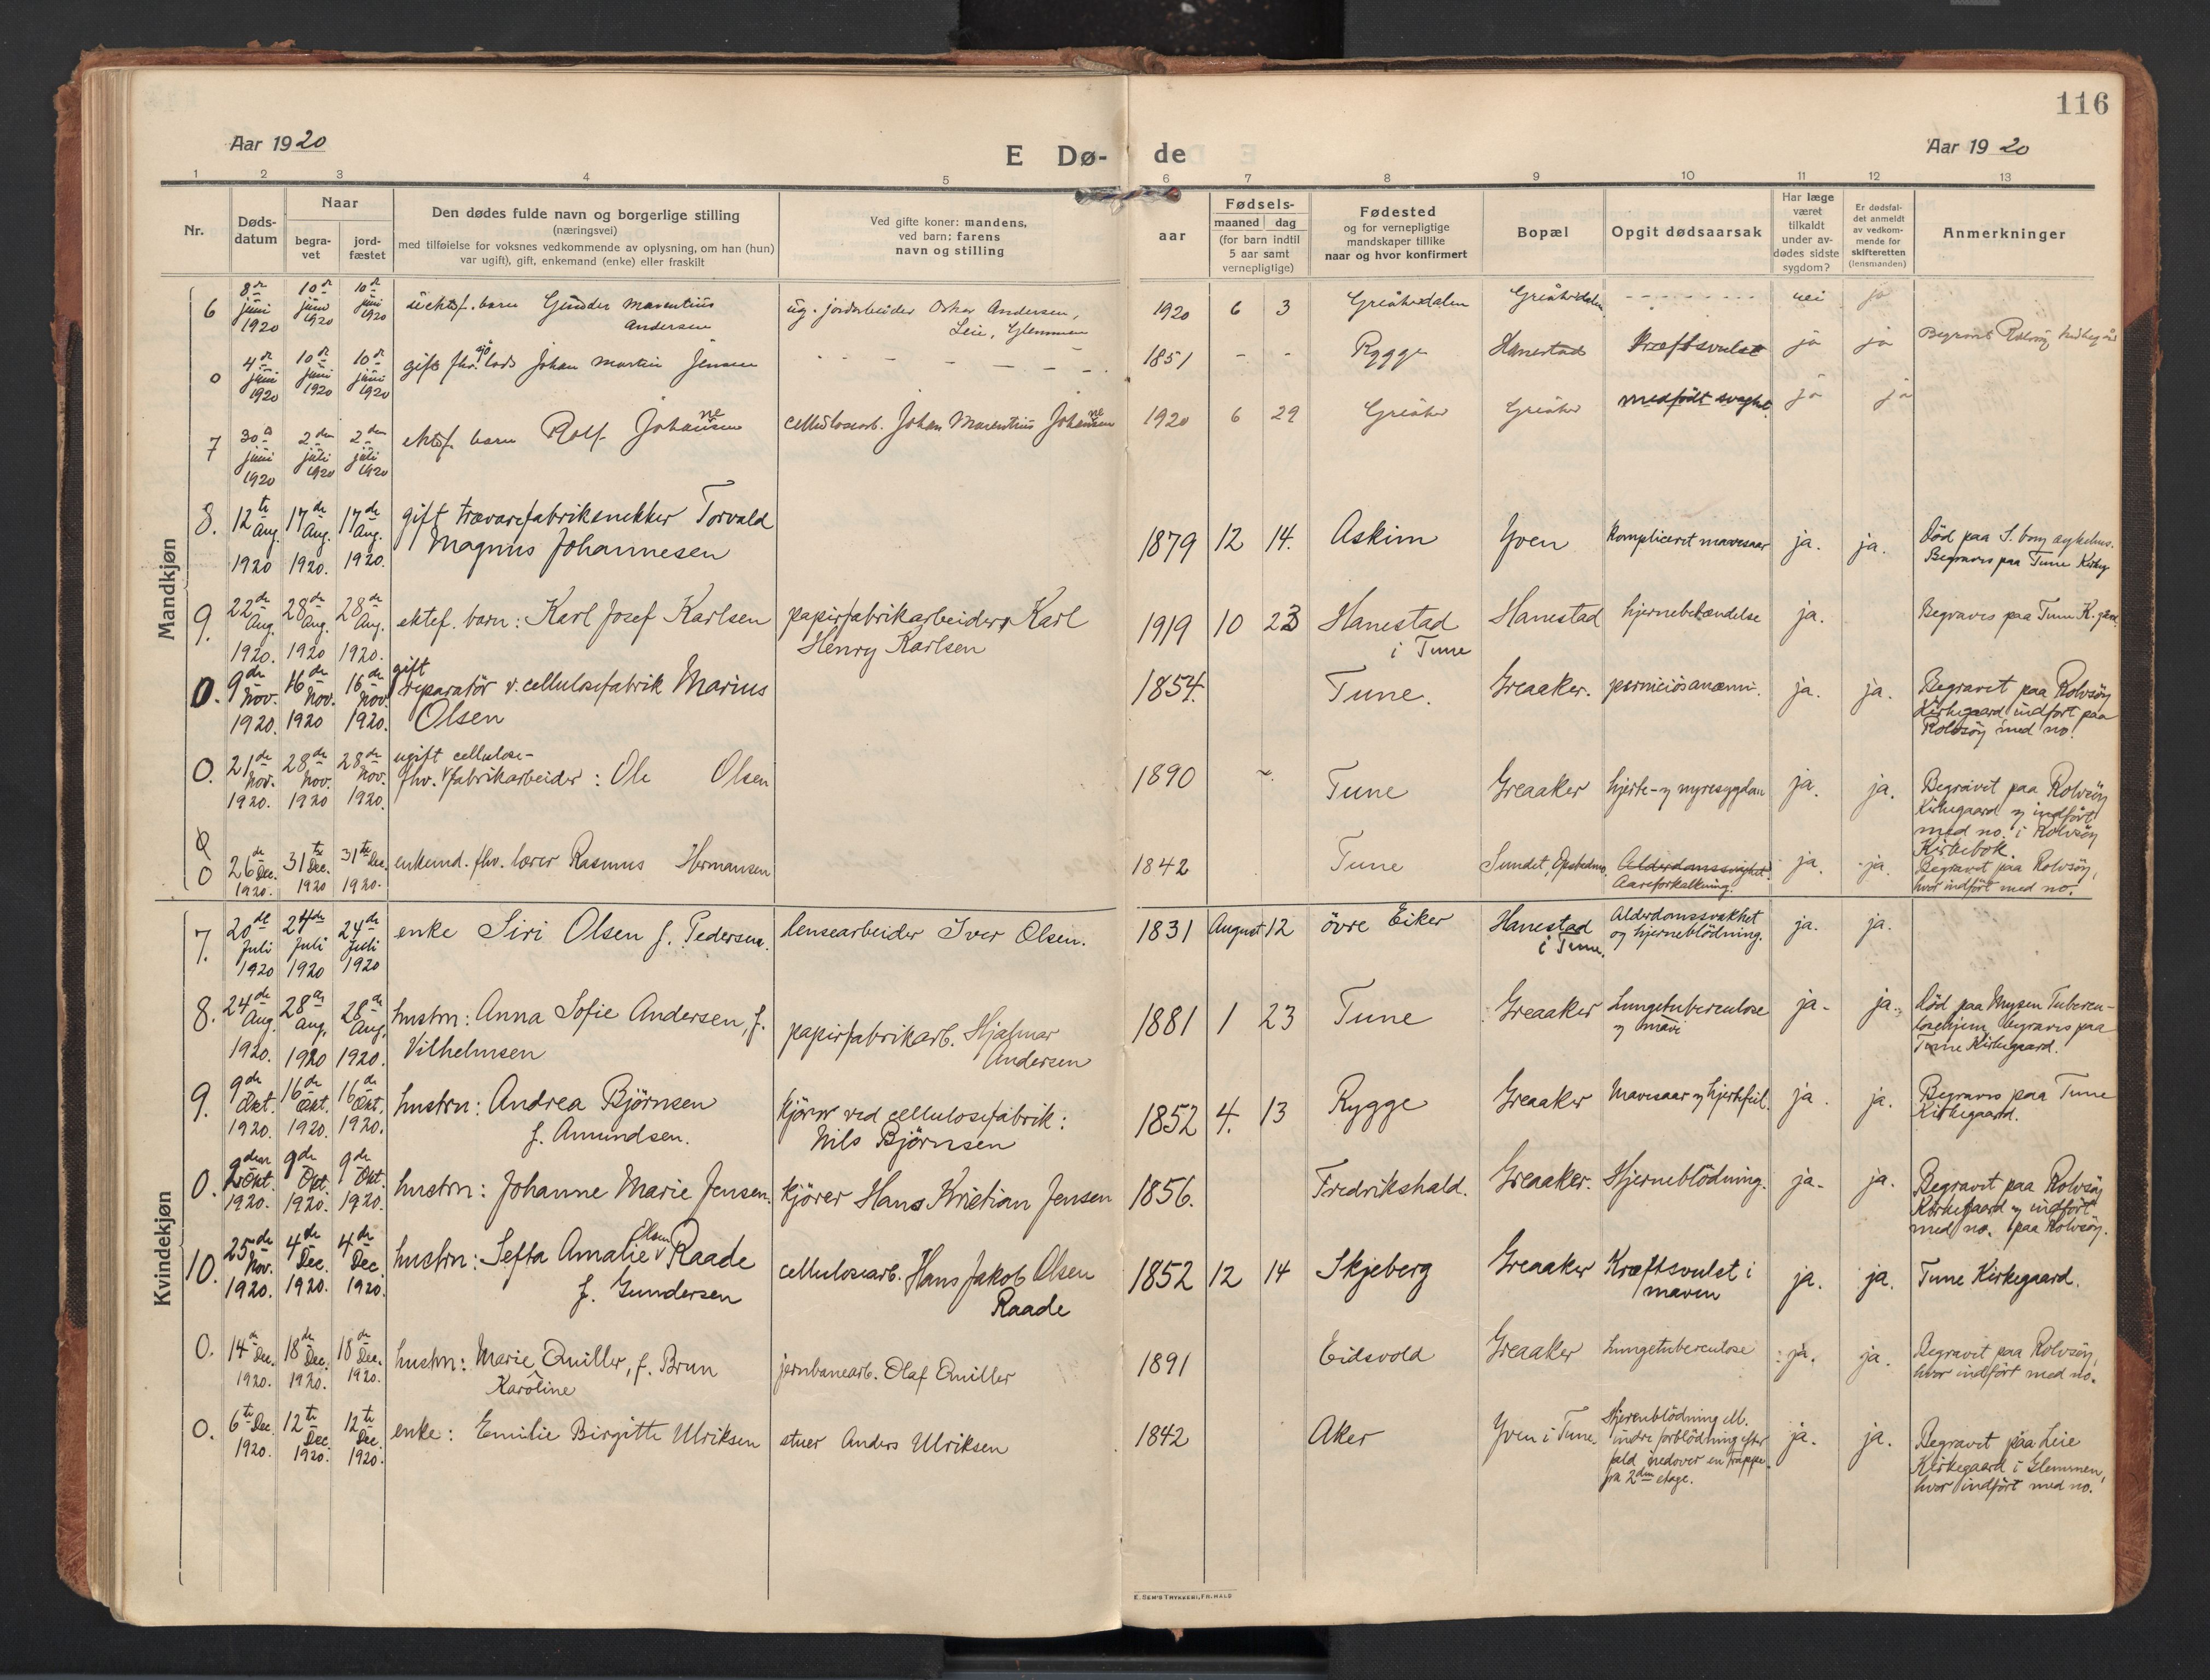 116
Aar 1920
E Dø-
de
Aar 1920
1 2 3 4 5 6 7 8 9 10 11 12 13
Nr.
Døds-
datum
Naar
begra-
vet
jord-
fæstet
Den dødes fulde navn og borgerlige stilling
(næringsvei)
med tilføielse for voksnes vedkommende av oplysning, om han (hun)
var ugift), gift, enkemand (enke) eller fraskilt
Ved gifte koner: mandens,
ved barn: farens
navn og stilling
aar
Fødsels-
maaned dag
(for barn indtil
5 aar samt
vernepligtige)
Fødested
og for vernepligtige
mandskaper tillike
naar og hvor konfirmert
Bopæl
Opgit dødsaarsak
Har læge
været
tilkaldt
under av-
dødes sidste
sygdom?
Er dødsfal-
det anmeldt
av vedkom-
mende for
skifteretten
(lensmanden)
Anmerkninger
Mandkjøn
6 8de juni 1920 10de juni 1920 10de juni 1920 uektef. barn Gunder Marentius
Andersen
ug. jordarbeider Oskar Andersen,
Leie, Glemmen
1920 6 3 Greåkerdalen Greåkerdalen - - - - nei ja
0 4de juni 1920 10de juni 1920 10de juni 1920 gift fhv. Johan Martin Jensen
- - - - -
1851 - - Rygge Hanestad Kræftsvulst ja ja Begravet Rolvsøy kirkegård
7 30de juni 1920 2den juli 1920 2den juli 1920 ektef. barn Rolf Johannesen
cellulosearb. Johan Marentius Johannesen
1920 6 29 Greåker Greåker medfødt svaghet ja ja
8. 12te Aug. 1920 17de Aug. 1920. 17de Aug. 1920. gift trævarefabriksnekker Torvald
Magnus Johannesen
1879 12 14. Askim Yven Kompliceret mavesaar ja. ja. Død paa S. borg sykehus.
Begraves paa Tune Kirkeg
9. 22de Aug. 1920. 28de Aug. 1920 28de Aug. 1920. ektef. barn: Karl Josef Karlsen
papirfabrikarbeider Karl
Henry Karlsen
1919 10 23 Hanestad
i Tune
Hanestad hjernebetændelse ja. Begraves paa Tune K.gård
0. 9de Nov. 1920. 16de Nov. 1920 16de Nov. 1920. gift
reparatör v. cellulosefabrik Marius
Olsen
1854. Tune. Greaaker. perniciös anæmi. ja. ja. Begravet paa Rolvsöy
Kirkegaard indfört paa
Rolvsöy med no.
0. 21de Nov. 1920. 28de Nov. 1920 28de Nov. 1920. ugift cellulose-
fhv. fabrikarbeider: Ole Olsen
1890 Tune Greaaker hjerte- og nyresygdom ja. ja. Begravet paa Rolvsöy
Kirkegaard og indfört
med no. i Rolvsöy
Kirkebok.
0 26de Dec. 1920. 31te Dec. 1920 31te Dec. 1920. enkemd. fhv. lærer Rasmus Hermansen
1842 Tune Sundet, Opstedmo, Alderdomssvaghet.
Aareforkalkning.
ja. ja. Begravet paa Rolvsöy,
hvor indfört med no.
Kvindekjøn
7. 20de Juli 1920 24de Juli 1920 24de Juli 1920 enke Siri Olsen f. Pedersen. lensearbeider Iver Olsen.
1831 August 12 övre Eiker Hanestad
i Tune.
Alderdomssvakhet
og hjerneblödning.
ja. ja.
8. 24de Aug. 1920. 28de Aug. 1920 28de Aug. 1920. hustru: Anna Sofie Andersen, f.
Vilhelmsen
papirfabrikarb. Hjalmar
Andersen
1881 1 23 Tune Greaaker Lungetuberculose
og mave
ja. ja. Död paa Mysen Tubercu-
losehjem, begraves paa
Tune Kirkegaard.
9. 9de Okt. 1920. 16de Okt. 1920. 16de Okt. 1920. hustru: Andrea Bjørnsen
f. Amundsen.
Kjörer ved cellulosefabrik:
Nils Bjørnsen
1852 4. 13 Rygge Greaaker Mavesaar og hjertefeil. ja. ja. Begraves paa Tune
Kirkegaard.
0. Okt. 1920. 9de Okt. 1920. 9de Okt. 1920. hustru: Johanne Marie Jensen. kjörer Hans Kristian Jensen
1856. Fredrikshald. Greaaker. Hjerneblödning. ja. ja. Begravet paa Rolvsöy
Kirkegaard og indfört
med no. paa Rolvsöy.
10. 25de Nov. 1920. 4de Dec. 1920. 4de Dec. 1920. hustru: Sefta Amalie Olsen Raade
f. Gundersen
cellulosearb. Hans Jakob Olsen
Raade
1852 12 14 Skjeberg Greaaker Kræftsvulst i
maven
ja. ja. Tune Kirkegaard.
0. 14de Dec. 1920. 18de Dec. 1920. 18de Dec. 1920. hustru: Marie Karoline Quiller, f. Brun
jernbanearb. Olaf Quiller
1891 Eidsvold Greaaker Lungetuberculose ja. ja. Begravet paa Rolvsöy,
hvor indfört med no.
0. 6te Dec. 1920. 12te Dec. 1920. 12te Dec. 1920. enke: Emilie Birgitte Ulriksen stuer Anders Ulriksen
1842 Aker Yven i Tune. Hjerneblödning ell.
indre forblödning efter
fald nedover en trappe
fra 2den etage.
ja. ja. Begravet paa Leie
Kirkegaard i Glemmen,
hvor indfört med no.
E. SEM'S TRYKKERI, FR.HALD